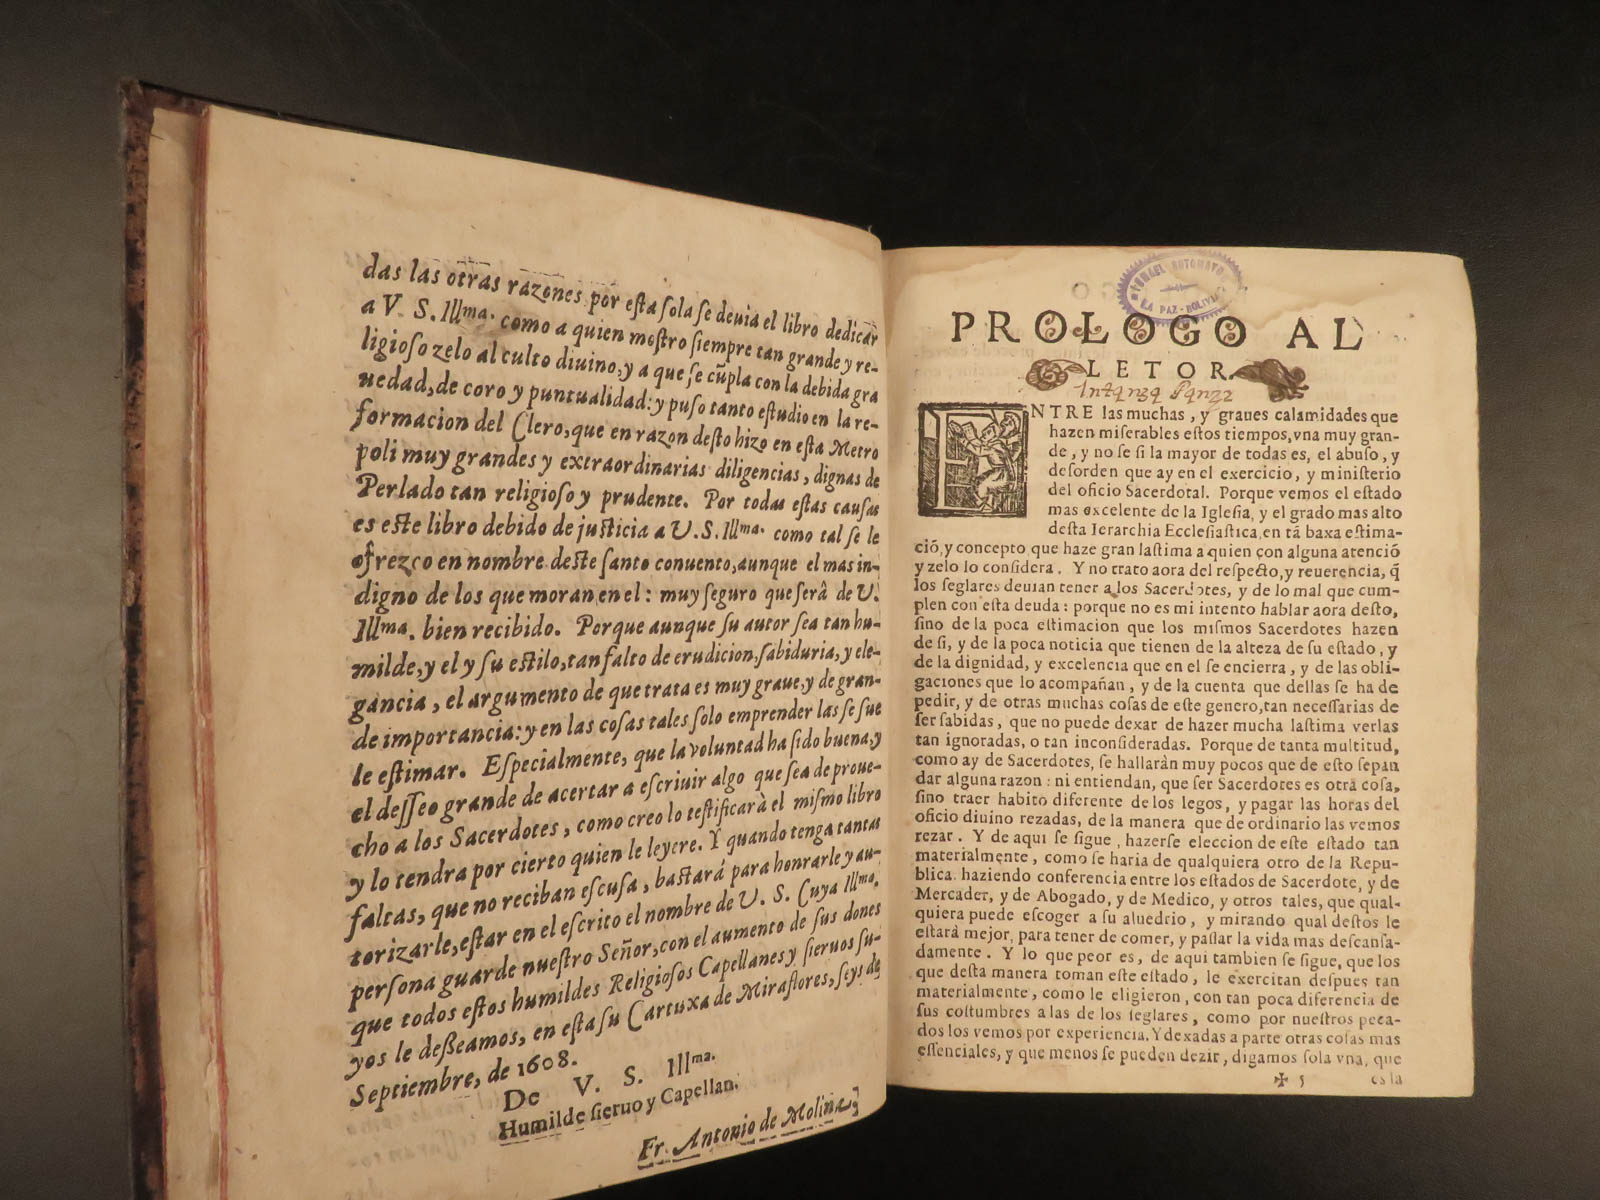 das las otras razones por esta sola se deuia el libro dedicar
a V. S. Illma. como a quien mostro siempre tan grande y re-
ligioso zelo al culto diuino, y a que se cũpla con la debida gra
uedad, de coro y puntualidad: y puso tanto estudio en la re-
formacion del Clero, que en razon desto hizo en esta Metro
poli muy grandes y extraordinarias diligencias, dignas de
Perlado tan religioso y prudente. Por todas estas causas
es este libro debido de justicia a V. S. Illma. como tal se le
ofrezco en nombre deste santo conuento, aunque el mas in-
digno de los que moran en el: muy seguro que serâ de V.
Illma. bien recibido. Porque aunque su autor sea tan hu-
milde, y el y su estilo, tan falto de erudicion, sabiduria, y ele-
gancia, el argumento de que trata es muy graue, y de gran-
de importancia: y en las cosas tales solo emprender las se sue
le estimar. Especialmente, que la voluntad ha sido buena, y
el desseo grande de acertar a escriuir algo que sea de proue-
cho a los Sacerdotes, como creo lo testificarà el mismo libro
y lo tendra por cierto quien le leyere. Y quando tenga tantas
faltas, que no reciban escusa, bastará para honrarle y au-
torizarle, estar en el escrito el nombre de V. S. Cuya Illma.
persona guarde nuestro Señor, con el aumento de sus dones
que todos estos humildes Religiosos Capellanes y sieruos su-
yos le deßeamos, en esta su Cartuxa de Miraflores, seys de
Septiembre, de 1608.
De V. S. Illma.
Humilde sieruo y Capellan.
Fr. Antonio de Molina
LA PAZ - BOLIVIA
PROLOGO AL
LETOR.
ENTRE las muchas, y graues calamidades que
hazen miserables estos tiempos, vna muy gran-
de, y no se si la mayor de todas es, el abuso, y
desorden que ay en el exercicio, y ministerio
del oficio Sacerdotal. Porque vemos el estado
mas excelente de la Iglesia, y el grado mas alto
desta Ierarchia Ecclesiastica, en tã baxa estima-
ció, y concepto, que haze gran lastima a quien con alguna atenció
y zelo lo considera. Y no trato aora del respecto, y reuerencia, q̃
los seglares deuian tener a los Sacerdotes, y de lo mal que cum-
plen con esta deuda: porque no es mi intento hablar aora desto,
sino de la poca estimacion que los mismos Sacerdotes hazen
de si, y de la poca noticia que tienen de la alteza de su estado, y
de la dignidad, y excelencia que en el se encierra, y de las obli-
gaciones que lo acompañan, y de la cuenta que dellas se ha de
pedir, y de otras muchas cosas de este genero, tan necessarias de
ser sabidas, que no puede dexar de hazer mucha lastima verlas
tan ignoradas, o tan inconsideradas. Porque de tanta multitud,
como ay de Sacerdotes, se hallaràn muy pocos que de esto sepan
dar alguna razon: ni entiendan, que ser Sacerdotes es otra cosa,
sino traer habito diferente de los legos, y pagar las horas del
oficio diuino rezadas, de la manera que de ordinario las vemos
rezar. Y de aqui se sigue, hazerse eleccion de este estado tan
materialmente, como se haria de qualquiera otro de la Repu-
blica, haziendo conferencia entre los estados de Sacerdote, y de
Mercader, y de Abogado, y de Medico, y otros tales, que qual-
quiera puede escoger a su aluedrio, y mirando qual destos le
estarà mejor, para tener de comer, y passar la vida mas descansa-
damente. Y lo que peor es, de aqui tambien se sigue, que los
que desta manera toman este estado, le exercitan despues tan
materialmente, como le eligieron, con tan poca diferencia de
sus costumbres a las de los seglares, como por nuestros peca-
dos los vemos por experiencia. Y dexadas a parte otras cosas mas
essenciales, y que menos se pueden dezir, digamos sola vna, que
✠ 5 es la